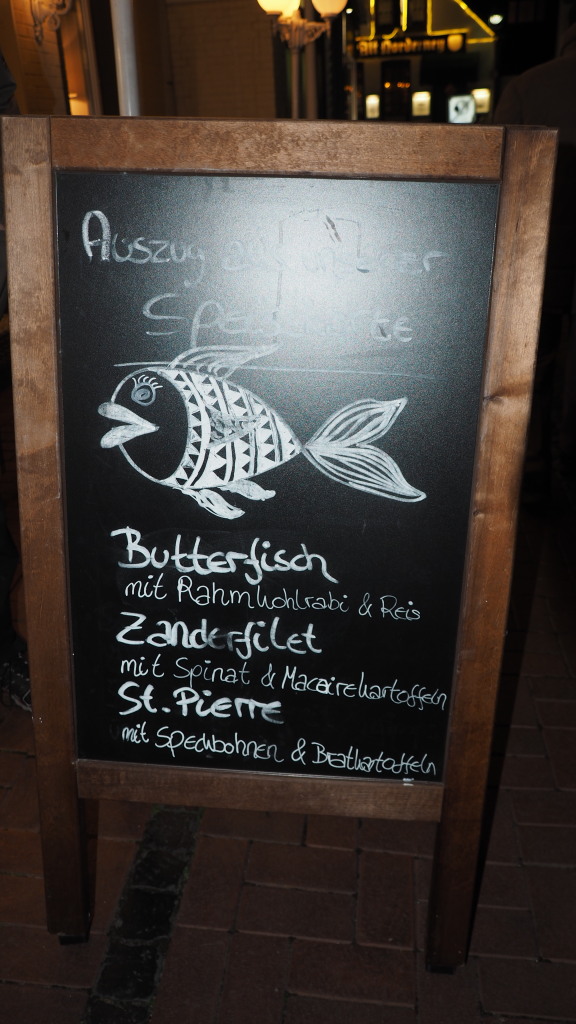 Alt Norderney
Auszug aus unserer
Speisekarte
Butterfisch
mit Rahmkohlrabi & Reis
Zanderfilet
mit Spinat & Macairekartoffeln
St. Pierre
mit Speckbohnen & Bratkartoffeln